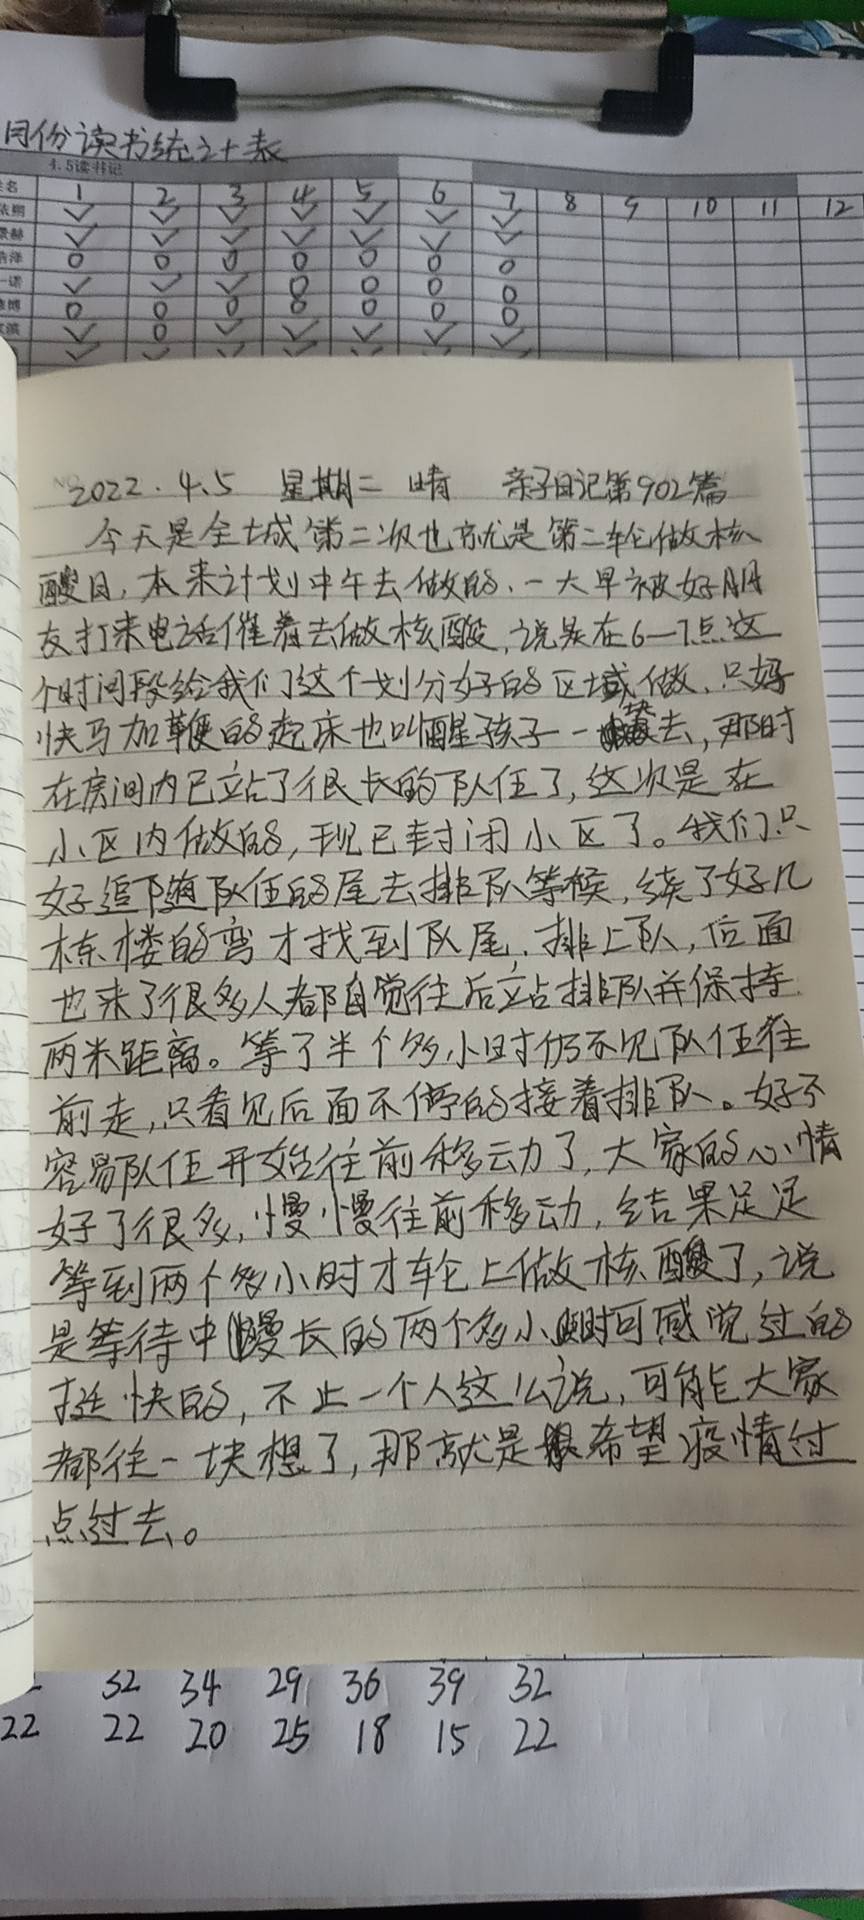 月份读书统计表
4.5读书记
1 2 3 4 5 6 7 8 9 10 11 12
2022.4.5 星期二 晴 亲子日记第902篇
今天是全城第二次也就是第二轮做核
酸日,本来计划中午去做的、一大早被好朋
友打来电话催着去做核酸,说是在6—7点这
个时间段给我们这个划分好的区域做,只好
快马加鞭的起床也叫醒孩子一块去,那时
在房间内已站了很长的队伍了,这次是在
小区内做的,现已封闭小区了。我们只
好追随队伍的尾去排队等候,绕了好几
栋楼的弯才找到队尾,排上队,后面
也来了很多人都自觉往后站排队并保持
两米距离。等了半个多小时仍不见队伍往
前走,只看见后面不停的接着排队。好不
容易队伍开始往前移动了,大家的心情
好了很多,慢慢往前移动,结果足足
等到两个多小时才轮上做核酸了,说
是等待中漫长的两个多小时可感觉过的
挺快的,不止一个人这么说,可能大家
都往一块想了,那就是希望疫情过
点过去。
32 34 29 36 39 32
22 22 20 25 18 15 22